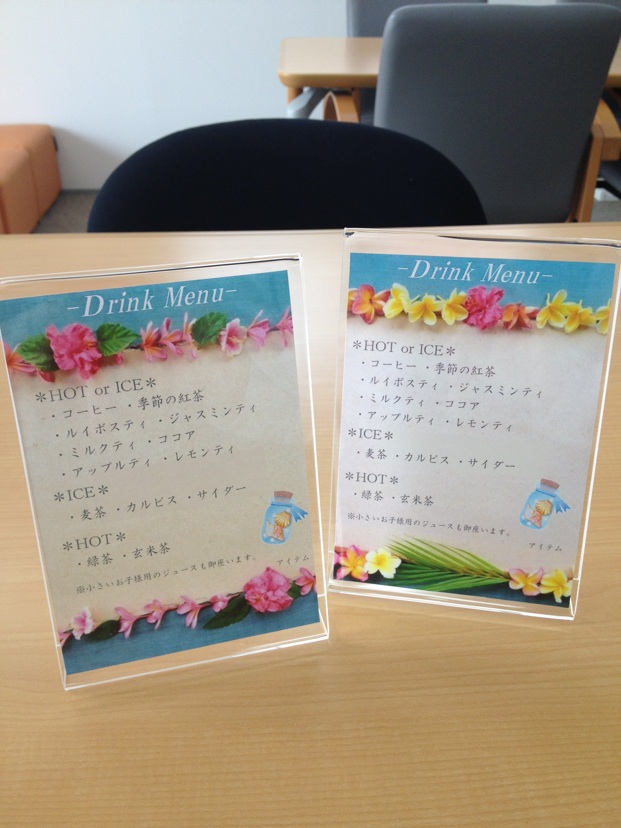 -Drink Menu-
＊HOT or ICE＊
・コーヒー ・季節の紅茶
・ルイボスティ ・ジャスミンティ
・ミルクティ ・ココア
・アップルティ ・レモンティ
＊ICE＊
・麦茶 ・カルピス ・サイダー
＊HOT＊
・緑茶 ・玄米茶
※小さいお子様用のジュースも御座います。
アイテム
-Drink Menu-
＊HOT or ICE＊
・コーヒー ・季節の紅茶
・ルイボスティ ・ジャスミンティ
・ミルクティ ・ココア
・アップルティ ・レモンティ
＊ICE＊
・麦茶 ・カルピス ・サイダー
＊HOT＊
・緑茶 ・玄米茶
※小さいお子様用のジュースも御座います。
アイテム